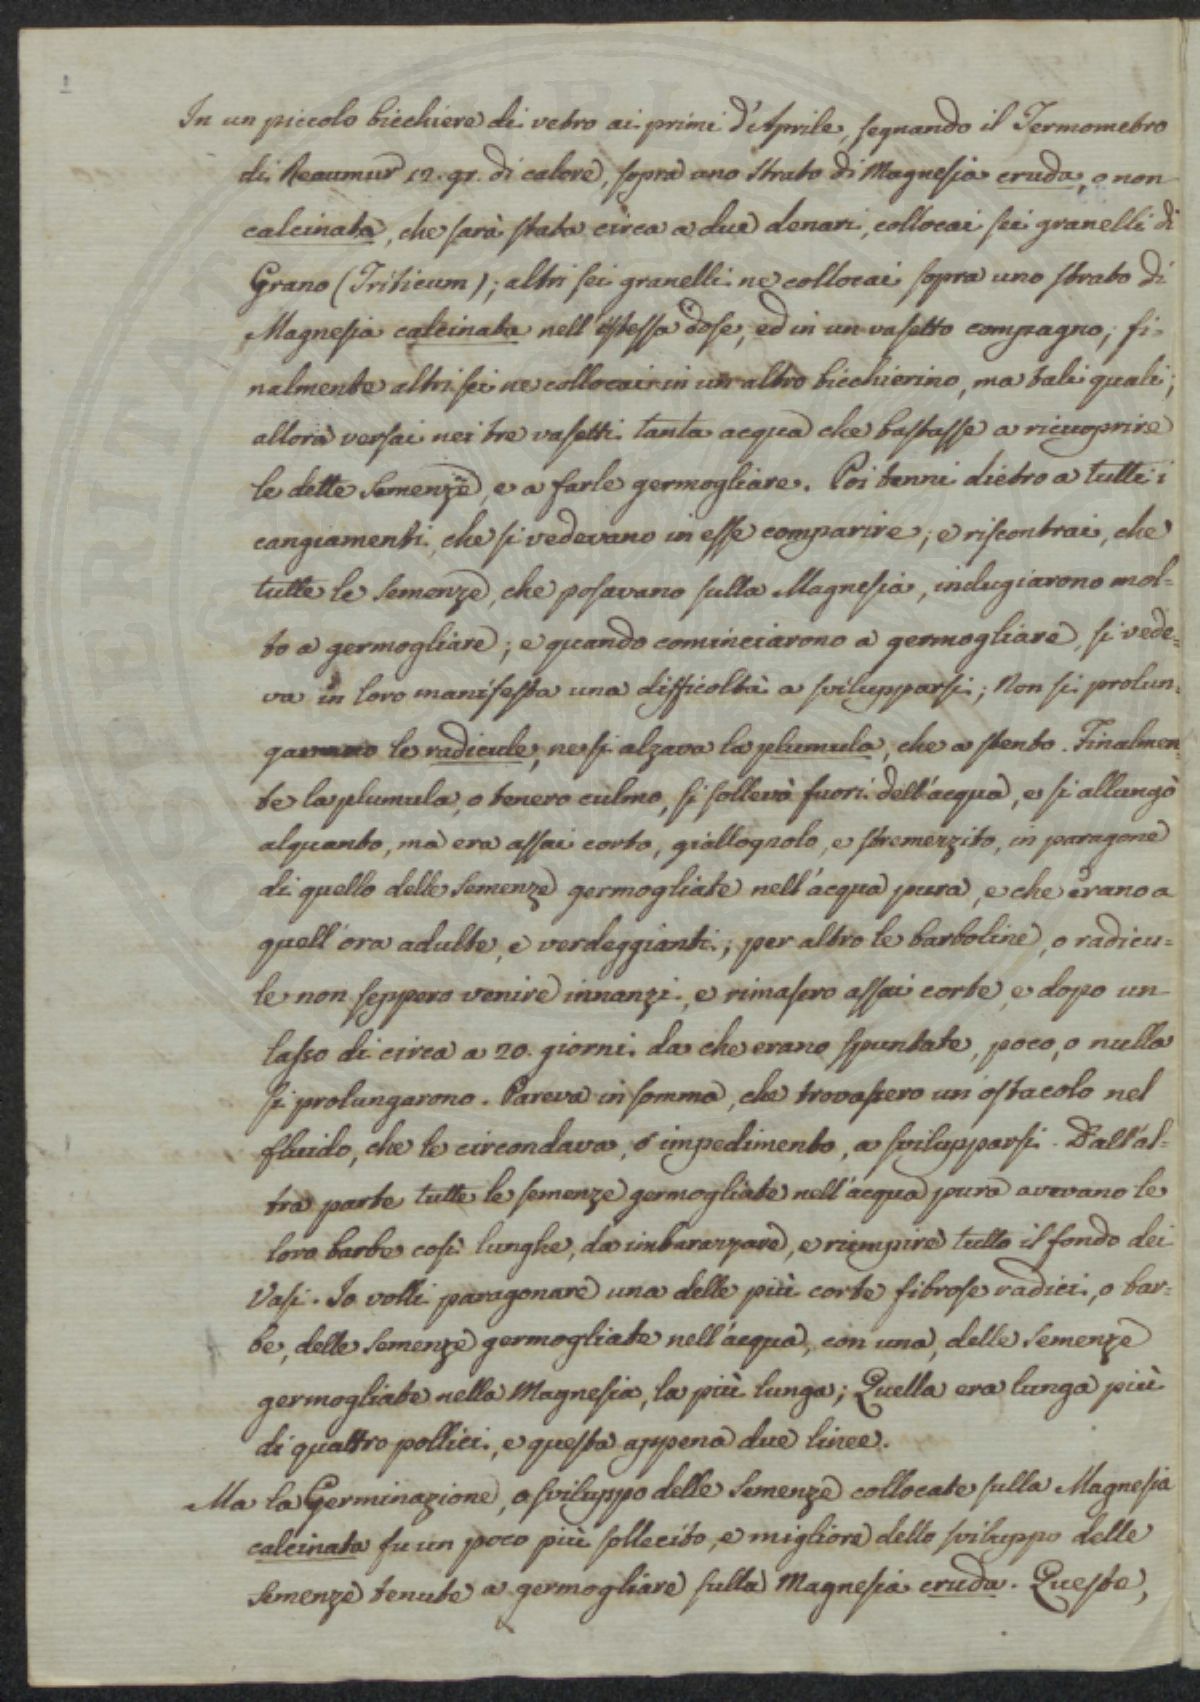 1
In un piccolo bicchiere di vetro ai primi d'Aprile, segnando il Termometro
di Reaumur 12. gr. di calore, sopra uno strato di Magnesia cruda, o non
calcinata, che sarà stata circa a due denari, collocai sei granelli di
Grano (Triticum); altri sei granelli ne collocai sopra uno strato di
Magnesia calcinata nell'istessa dose, ed in un vasetto compagno; fi-
nalmente altri sei ne collocai in un altro bicchierino, ma tali quali;
allora versai nei tre vasetti tanta acqua che bastasse a ricuoprire
le dette Semenze, e a farle germogliare. Poi tenni dietro a tutti i
cangiamenti, che si vedevano in esse comparire; e riscontrai, che
tutte le Semenze, che posavano sulla Magnesia, indugiarono mol=
to a germogliare; e quando cominciarono a germogliare, si vede=
va in loro manifesta una difficoltà a svilupparsi; Non si prolun=
gavano le radicule, ne si alzava la plumula, che a stento. Finalmen=
te la plumula, o tenero culmo, si sollevò fuori dell'acqua, e si allungò
alquanto, ma era assai corto, giallognolo, e stremenzito, in paragone
di quello delle Semenze germogliate nell'acqua pura, e che erano a
quell'ora adulte, e verdeggianti; per altro le barboline, o radicu=
le non seppero venire innanzi, e rimasero assai corte, e dopo un
lasso di circa a 20. giorni da che erano spuntate, poco, o nulla
si prolungarono. Pareva in somma, che trovassero un'ostacolo nel
fluido, che le circondava, o impedimento, a svilupparsi. Dall'al=
tra parte tutte le semenze germogliate nell'acqua pura avevano le
loro barbe così lunghe, da imbarazzare, e riempire tutto il fondo dei
Vasi. Io volli paragonare una delle più corte fibrose radici, o bar=
be, delle Semenze germogliate nell'acqua, con una, delle Semenze
germogliate nella Magnesia, la più lunga; Quella era lunga più
di quattro pollici, e questa appena due linee.
Ma la Germinazione, o sviluppo delle Semenze collocate sulla Magnesia
calcinata fu un poco più sollecito, e migliore dello sviluppo delle
Semenze tenute a germogliare sulla Magnesia cruda. Queste,